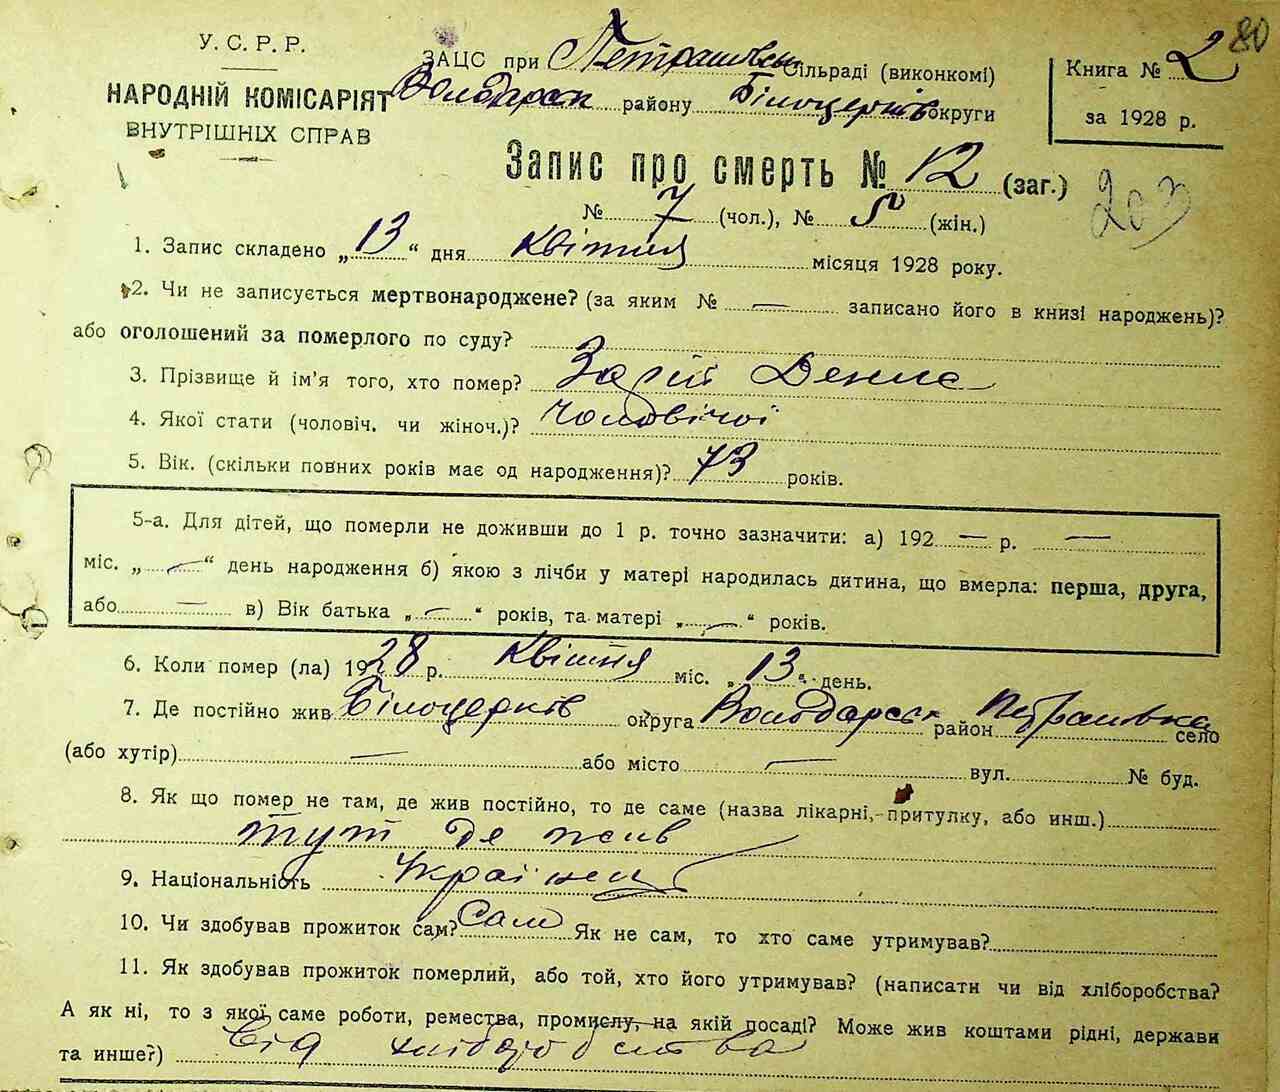 80
У. С. Р. Р.
НАРОДНІЙ КОМІСАРІЯТ
ВНУТРІШНІХ СПРАВ
ЗАЦС при Петрашівськ Сільраді (виконкомі)
Володарськ району Білоцерків округи
Книга № 2
за 1928 р.
Запис про смерть № 12 (заг.)
203
№ 7 (чол.), № 5 (жін.)
1. Запис складено „ 13 “ дня квітня місяця 1928 року.
2. Чи не записується мертвонароджене? (за яким № — записано його в книзі народжень)?
або оголошений за померлого по суду?
3. Прізвище й ім'я того, хто помер? Денис
4. Якої стати (чоловіч. чи жіноч.)? чоловічої
5. Вік. (скільки повних років має од народження)? 73 років.
5-а. Для дітей, що померли не доживши до 1 р. точно зазначити: а) 192 — р. —
міс. „ — “ день народження б) якою з лічби у матері народилась дитина, що вмерла: перша, друга,
або — в) Вік батька „ — “ років, та матері „ — “ років.
6. Коли помер (ла) 1928 р. квітня міс. „ 13 “ день.
7. Де постійно жив Білоцерків округа Володарськ район Петрашівка село
(або хутір) — або місто — вул. № буд.
8. Як що помер не там, де жив постійно, то де саме (назва лікарні, притулку, або инш.)
тут де жив
9. Національність Українець
10. Чи здобував прожиток сам? Сам Як не сам, то хто саме утримував?
11. Як здобував прожиток померлий, або той, хто його утримував? (написати чи від хліборобства?
А як ні, то з якої саме роботи, ремества, промислу, на якій посаді? Може жив коштами рідні, держави
та инше?) Від хліборобства